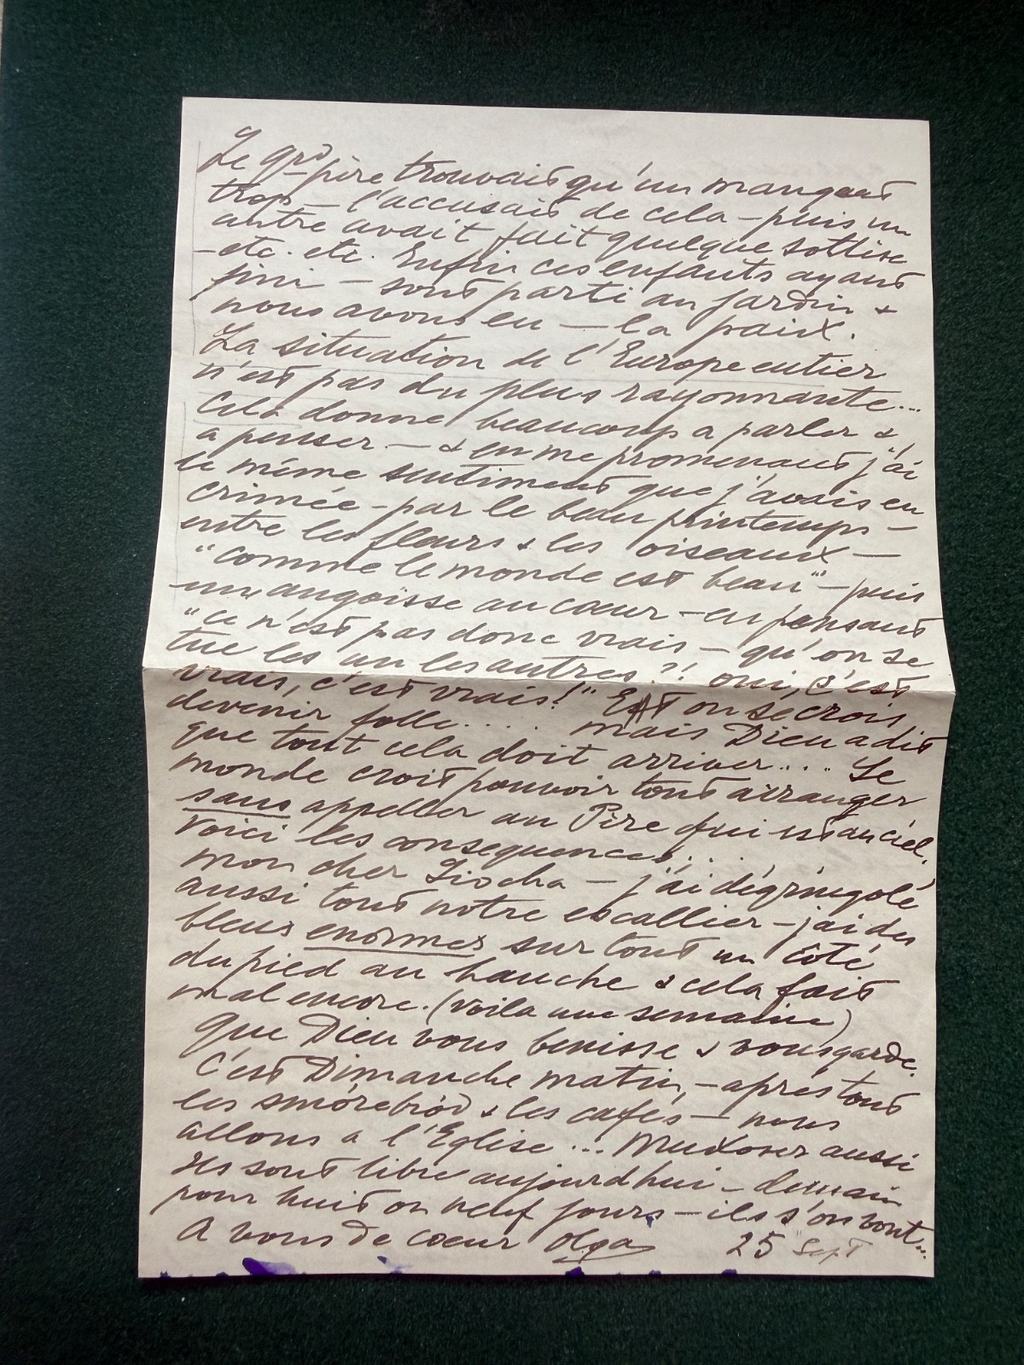 Le grd-père trouvait qu'un mangeait
trop – l'accusait de cela – puis un
autre avait fait quelque sottise
– etc. etc. Enfin ces enfants ayant
fini – sont parti au jardin &
nous avons eu – la paix.
La situation de l'Europe entier
n'est pas du plus rayonnante...
cela donne beaucoup a parler &
a penser – & en me promenant j'ai
le même sentiment que j'avais en
crimée – par le beau printemps –
entre les fleurs & les oiseaux –
"comme le monde est beau" – puis
un angoisse au cœur – en pensant
"ce n'est pas donc vrais – qu'on se
tue les un les autres?! oui, c'est
vrais, c'est vrais!" Et on se crois
devenir folle.... mais Dieu a dit
que tout cela doit arriver.... Le
monde croit pouvoir tout arranger
sans appeller au Père qui est au ciel,
Voici les consequences...
mon cher – j'ai dégringolé
aussi tout notre escallier – j'ai des
bleus enormes sur tout un côté
du pied au hanche & cela fait
mal encore. (voila une semaine)
Que Dieu vous benisse & vous garde.
C'est Dimanche matin, – apres tout
les smórebröd & les cafés – nous
allons a l'Eglise... aussi
Ils sont libre aujourdhui – demain
pour huit ou neuf jours – ils s'en vont...
A vous de cœur Olga 25 Sept